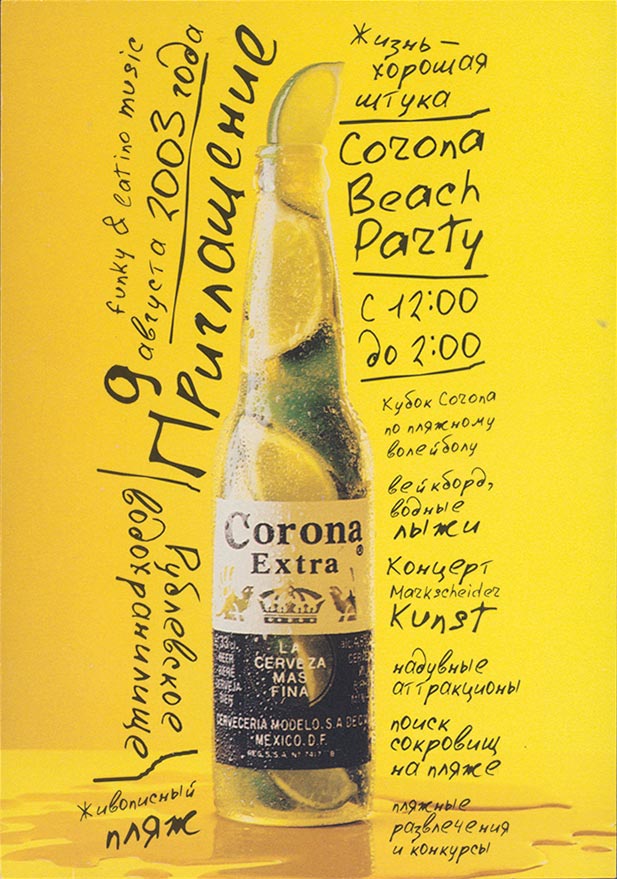 funky & latino music
9 августа 2003 года
Приглашение
Рублевское
водохранилище
живописный
пляж
Жизнь –
хорошая
штука
Corona
Beach
Party
с 12:00
до 2:00
Кубок Corona
по пляжному
волейболу
вейкборд,
водные
лыжи
Концерт
Markscheider
Kunst
надувные
аттракционы
поиск
сокровищ
на пляже
пляжные
развлечения
и конкурсы
Corona
®
Extra
LA
CERVEZA
MAS
FINA
CERVECERIA MODELO, S.A. DE C.
MEXICO. D.F.